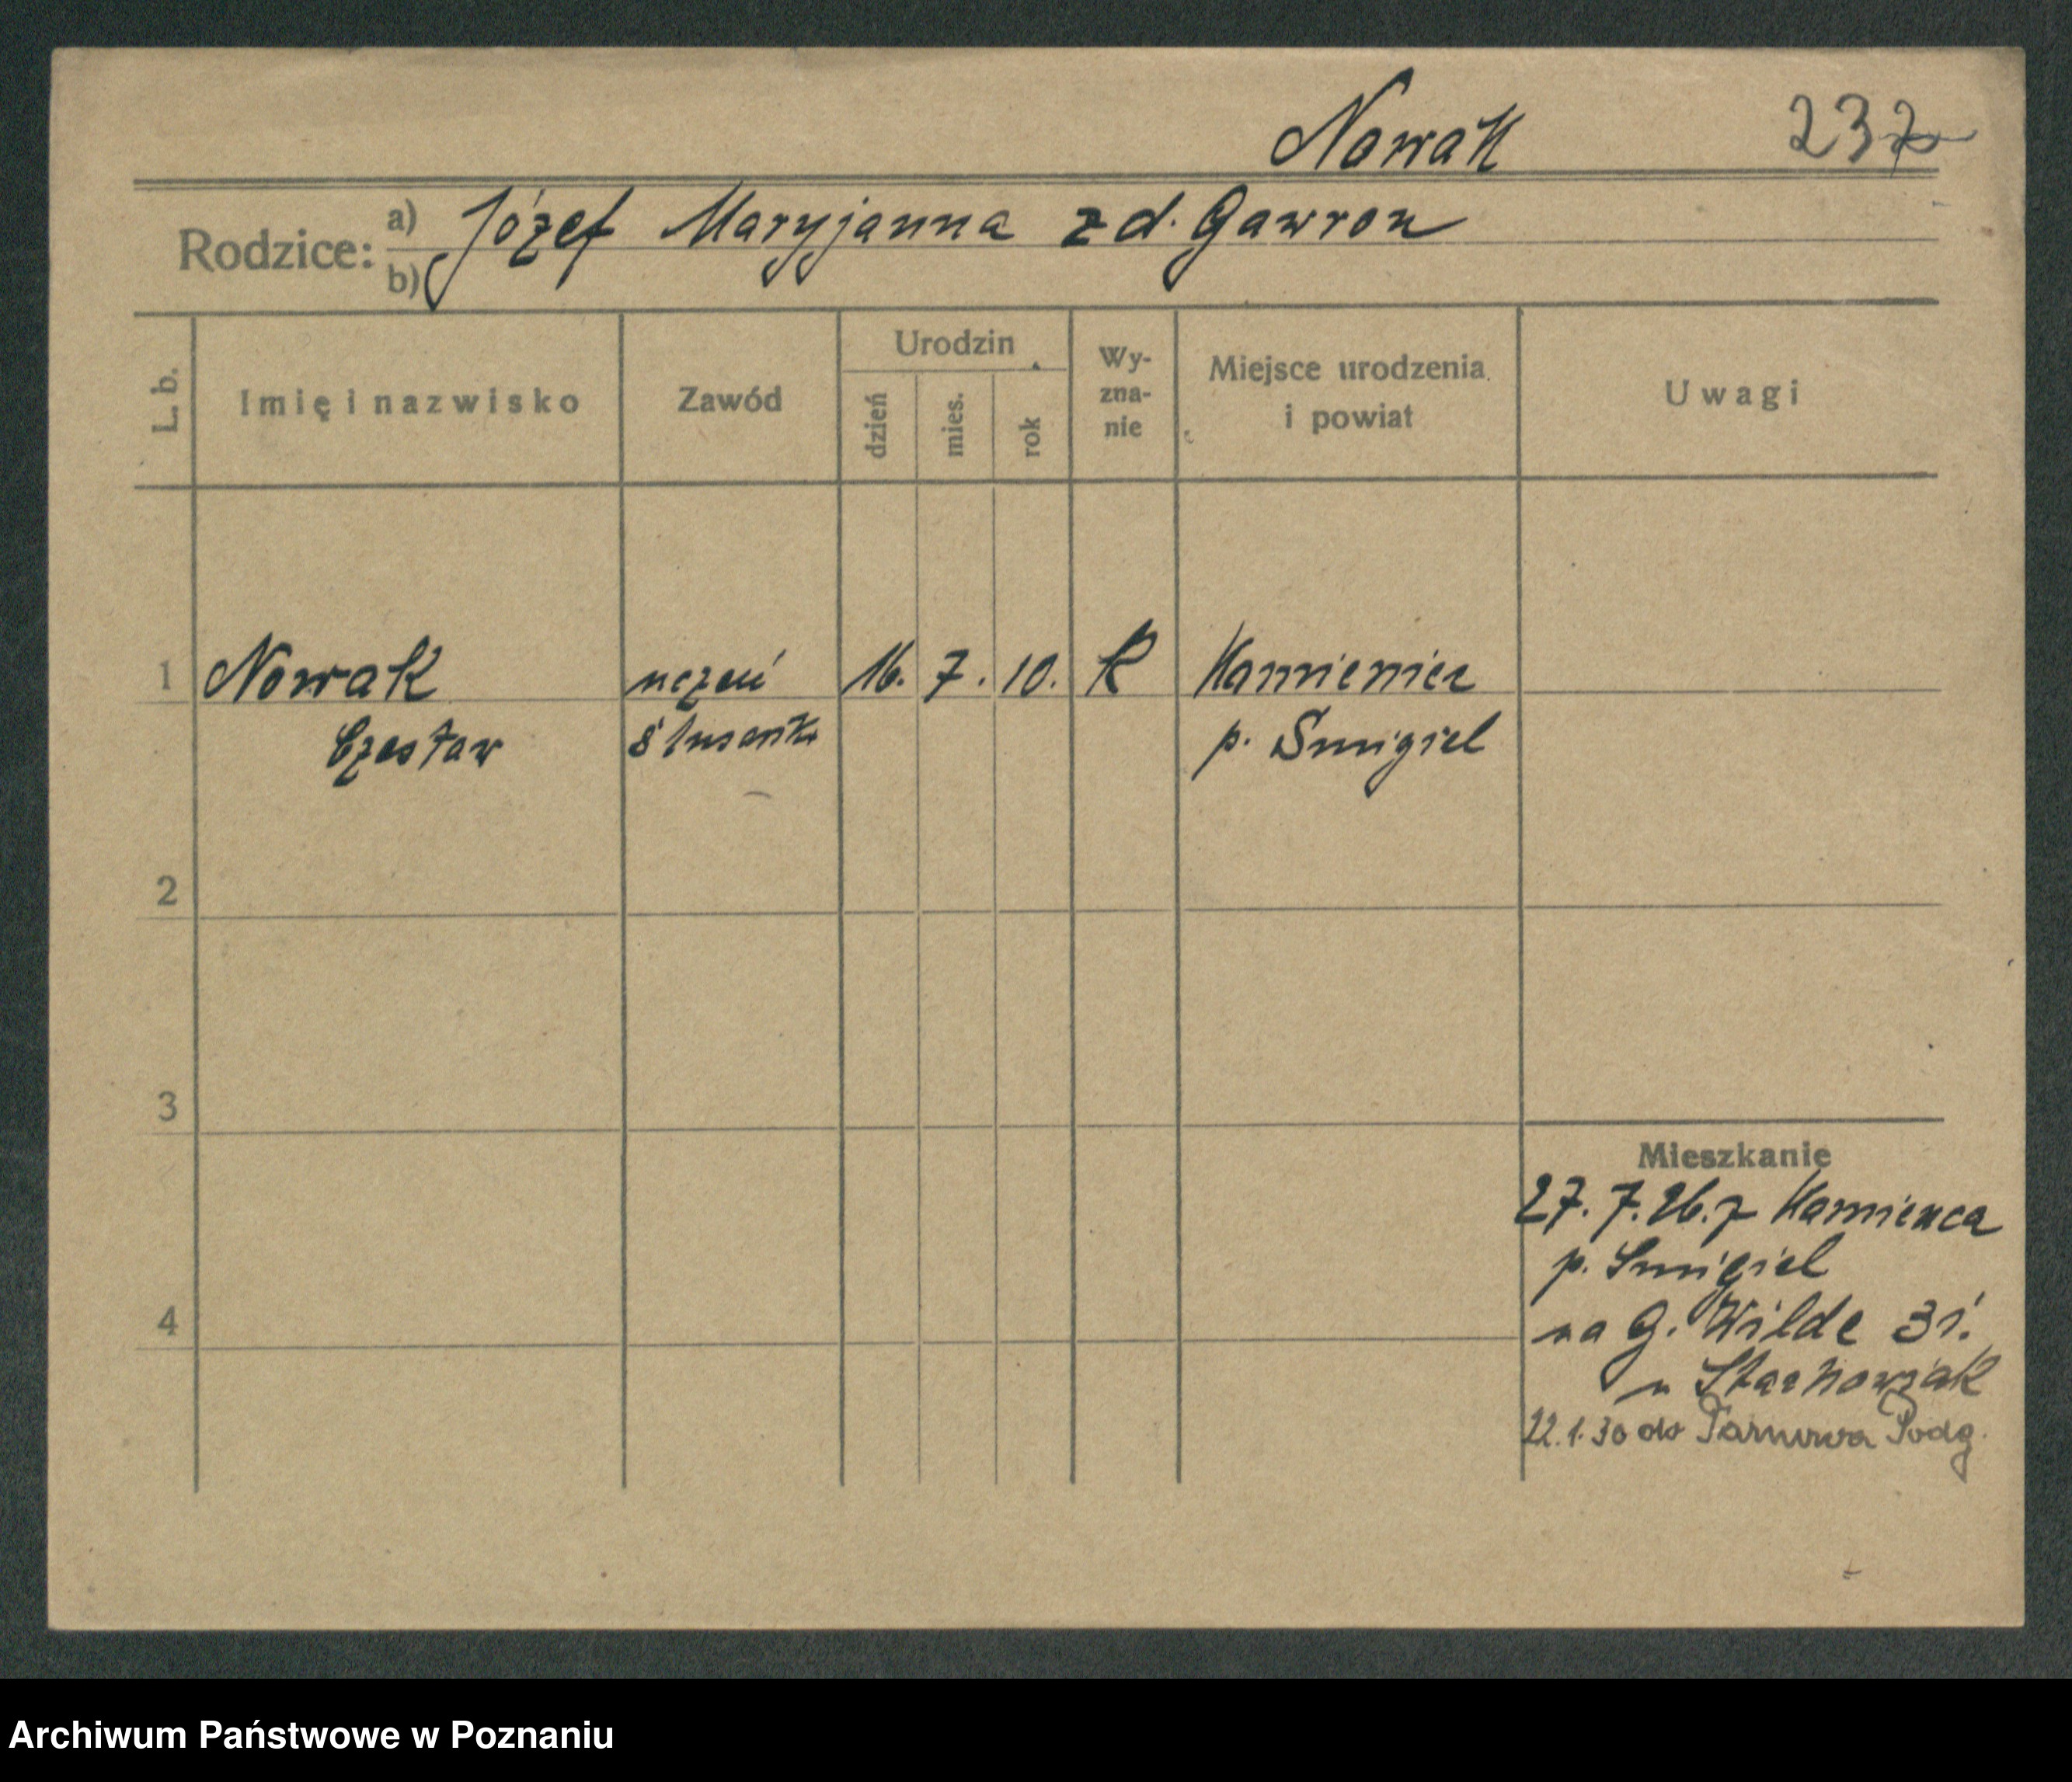 Nowak 237
Rodzice: a) Józef Maryjanna z d. Gawron
b)
L. b. Imię i nazwisko Zawód Urodzin dzień mies. rok Wyznanie Miejsce urodzenia i powiat Uwagi
1 Nowak uczeń 16. 7. 10. K Kamieniec
Czesław ślusarsk. p. Smigiel
2
3
Mieszkanie
27. 7. 26. z Kamieńca
p. Smigiel
4 na G. Wilde 31.
u Stachowiak
22.1.30 do Tarnowa Podg.
Archiwum Państwowe w Poznaniu